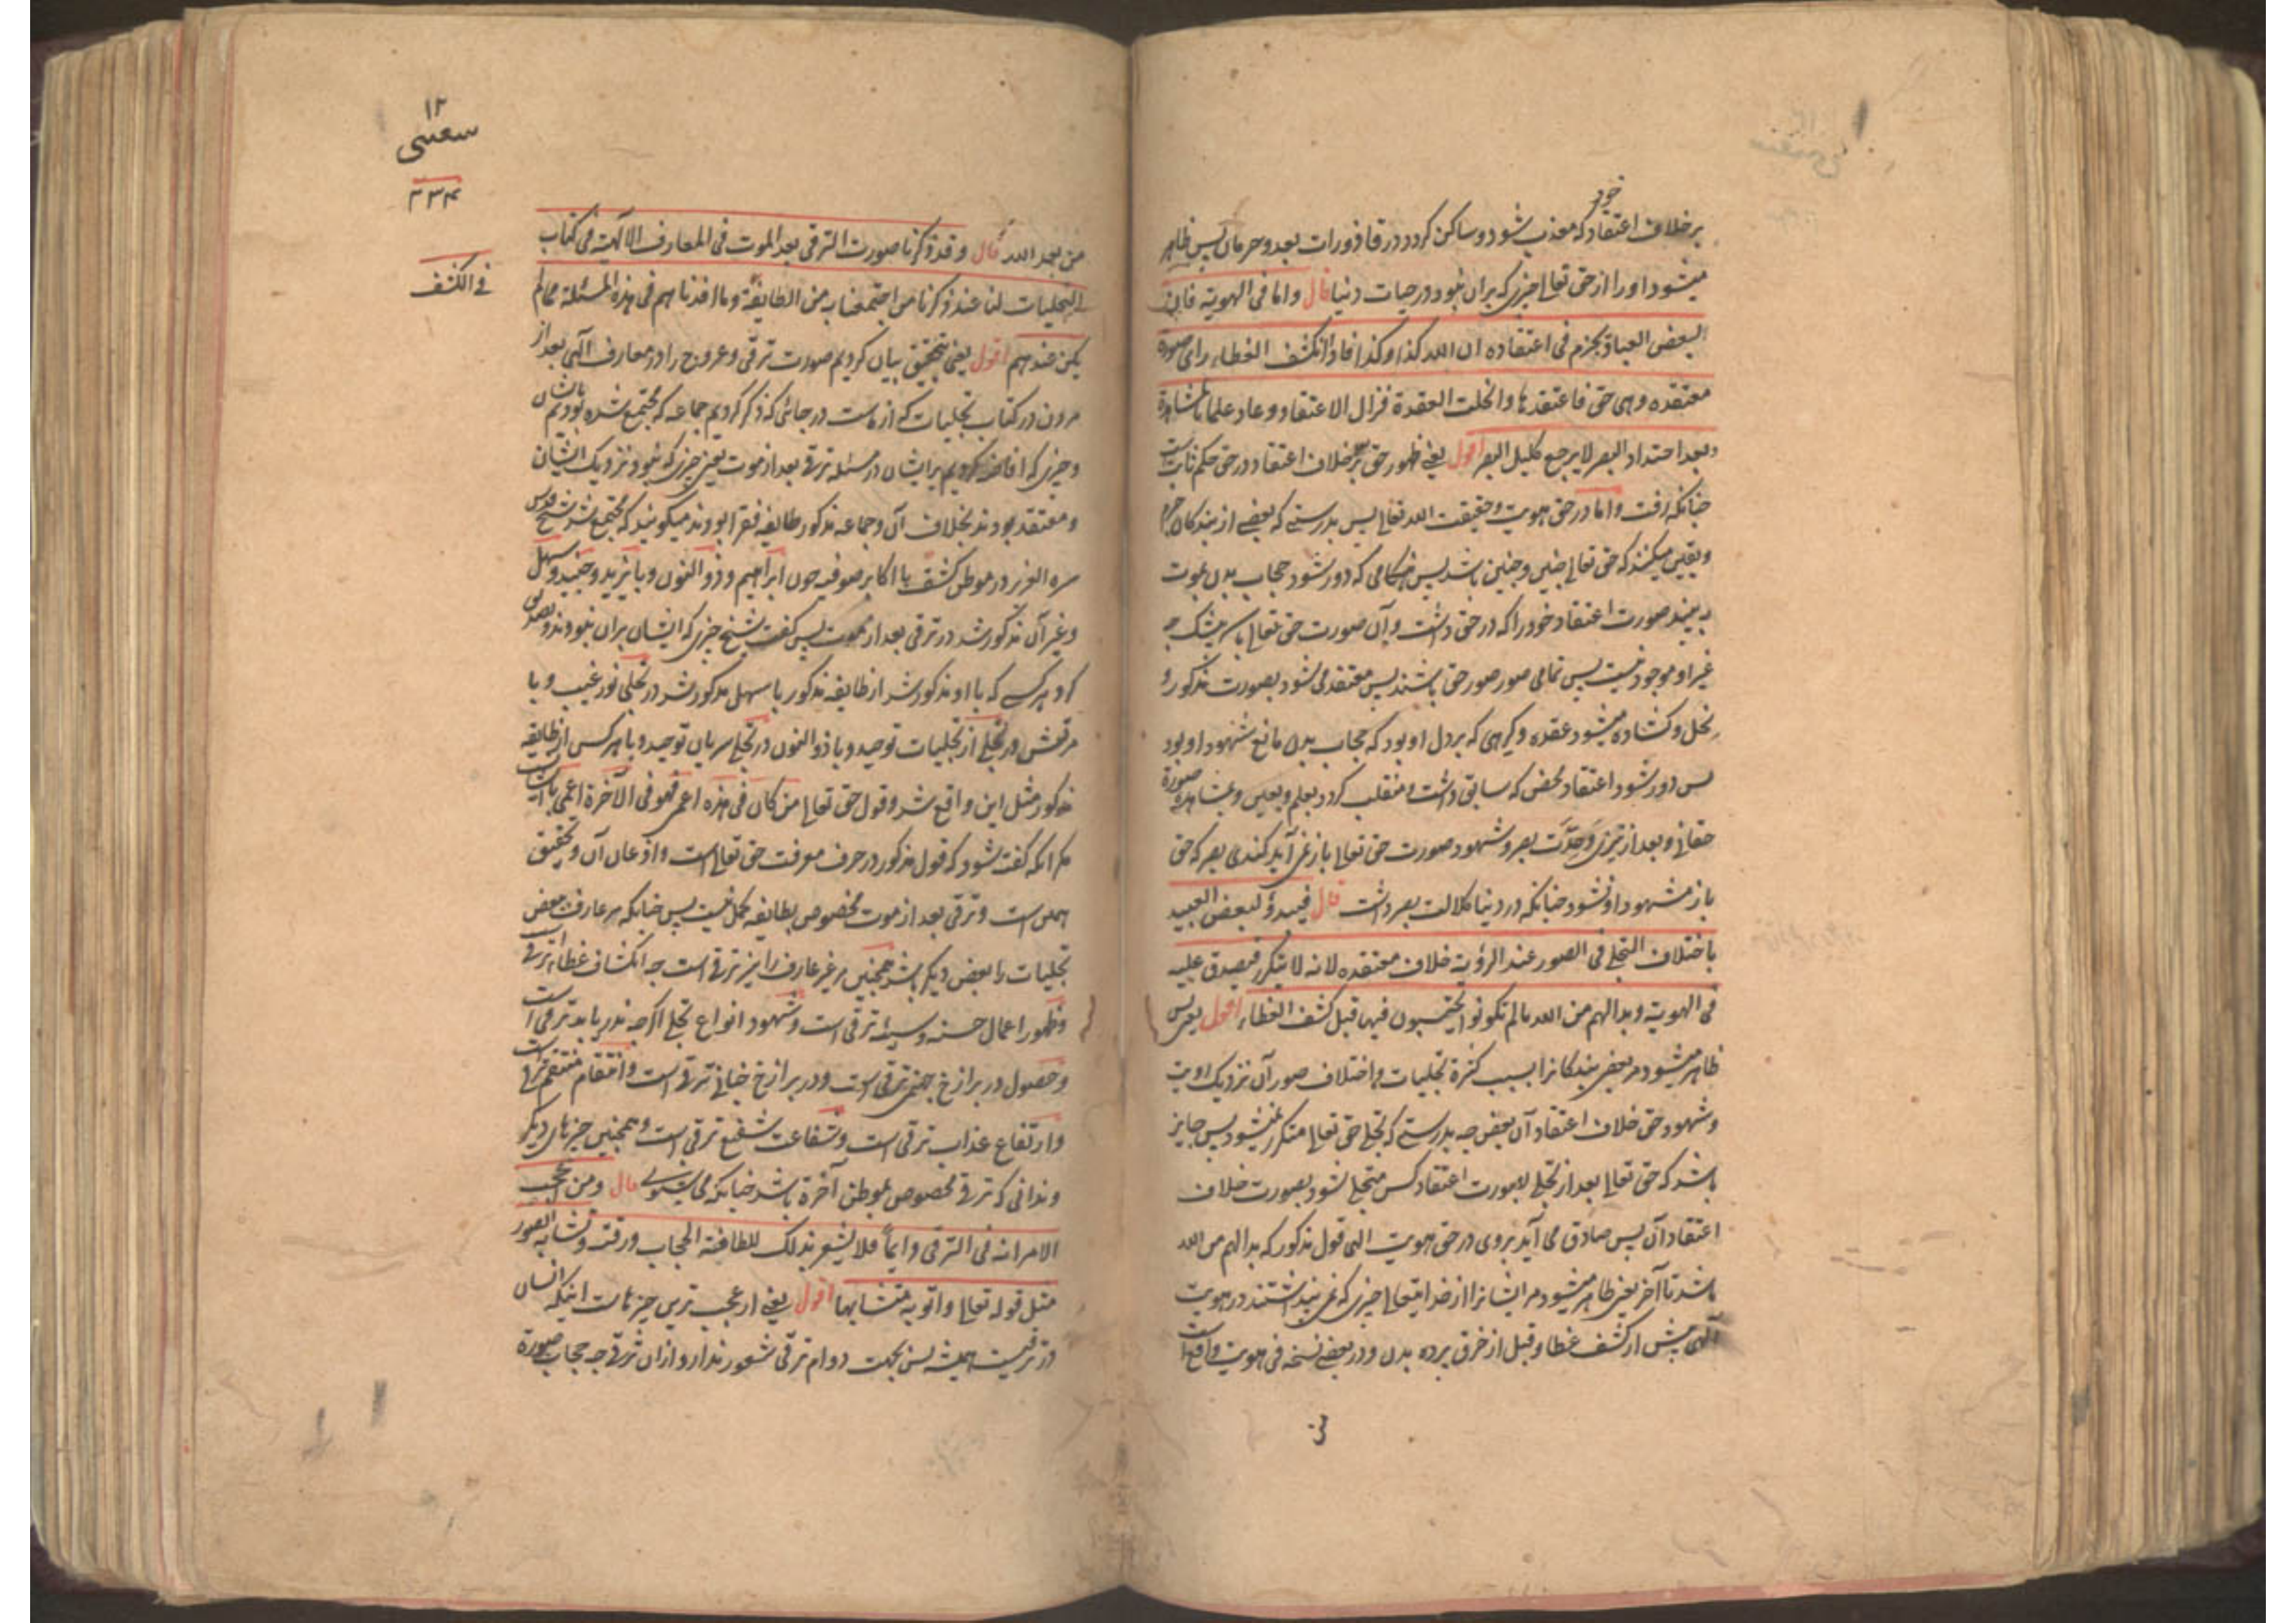 خود
برخلاف اعتقاد که معذب شود و ساکن کردد در قاذورات بعد و حرمان پس ظاهر
میشود او را از حق تعالی چیزی که بران نبود در حیات دنیا قال واما فی الهویة فان
لبعض العباد یجزم فی اعتقاده ان الله کذا و کذا فاذا انکشف الغطاء رای صورة
معتقده وهی حق فاعتقدها وانحلت العقدة فزال الاعتقاد وعاد علما بالمشاهدة
وبعد احتداد البصر لا یرجع کلیل البصر اقول یعنی ظهور حق برخلاف اعتقاد در حق حکم ثابت است
چنانکه رفت واما در حق هویت و حقیقت الله تعالی پس بدرستی که بعضی از بندکان جزم
و یقین میکنند که حق تعالی چنین و چنین باشد پس هنکامی که دور شود حجاب بدن بموت
به بیند صورت اعتقاد خود را که در حق داشت و آن صورت حق تعالی باشد بیشک چه
غیر او موجود نیست پس تمامی صور صور حق باشند پس معتقد می شود بصورت مذکور و
منحل و کشاده میشود عقده و کرهی که بر دل او بود که حجاب بدن مانع شهود او بود
پس دور شود اعتقاد محض که سابق داشت و منقلب کردد بعلم و یقین و بمشاهده صورة
حقانی و بعد از تیزی و حدّت بصر و شهود صورت حق تعالی باز نمی آید کندی بصر که حق
باز مشهود او نشود چنانکه در دنیا کلالت بصر داشت قال فیبدو لبعض العبید
باختلاف التجلی فی الصور عند الرؤیة خلاف معتقده لانه لا یتکرر فیصدق علیه
فی الهویة وبدا لهم من الله ما لم یکونوا یحتسبون فیها قبل کشف الغطاء اقول یعنی پس
ظاهر میشود مر بعض بندکانرا بسبب کثرة تجلیات و اختلاف صور آن نزدیک رویت
و شهود حق خلاف اعتقاد آن بعض چه بدرستی که تجلی حق تعالی متکرر نمیشود پس جایز
باشد که حق تعالی بعد از تجلی بصورت اعتقاد کسی متجلی شود بصورت خلاف
اعتقاد آن پس صادق می آید بروی در حق هویت الهی قول مذکور که بدا لهم من الله
باشد تا آخر یعنی ظاهر میشود مر ایشانرا از خدایتعالی چیزی که نمی پنداشتند در هویت
الهی پیش از کشف غطا و قبل از خرق پرده بدن و در بعضی نسخه فی هویته واقع است
۱۲
سعسی
۳۳۴
فی الکشف
من عند الله قال وقد ذکرنا صورت الترقی بعد الموت فی المعارف الالهیة فی کتاب
التجلیات لنا عند ذکرنا من اجتمعنا به من الطایفة وما افدناهم فی هذه المسئلة مما لم
یکن عندهم اقول یعنی بتحقیق بیان کردیم صورت ترقی و عروج را در معارف الهی بعد از
مردن در کتاب تجلیات که از ماست در جائی که ذکر کردیم جماعه که مجتمع شده بودیم بایشان
و چیزی که افاضه کردیم بر ایشان در مسئله ترقی بعد از موت یعنی چیزی که نبود نزدیک ایشان
و معتقد بودند بخلاف آن و جماعه مذکور طایفه فقرا بودند میکویند که مجتمع شد شیخ قدس
سره العزیز در موطن کشف با اکابر صوفیه چون ابراهیم و ذو النون و بایزید و جنید و سهل
و غیر آن مذکور شد در ترقی بعد از موت پس کفت شیخ چیزی که ایشان بران نبودند و تصدیق
کرد هر کسی که با او مذکور شد از طایفه مذکور با سهل مذکور شد در تجلی نور غیب و با
مرتعش در تجلی از تجلیات توحید و با ذو النون در تجلی سریان توحید و با هر کس از طایفه
مذکور مثل این واقع شد و قول حق تعالی من کان فی هذه اعمی فهو فی الآخرة اعمی
مکر آنکه کفته شود که قول مذکور در حرف معرفت حق تعالی است و اذعان آن و تحقیق
همین است و ترقی بعد از موت مخصوص بطایفه کمل نیست پس چنانکه مر عارف بعض
تجلیات را بعض دیکر باشد همچنین مر غیر عارف را نیز ترقی است چه انکشاف غطا ترقی است
و ظهور اعمال حسنه و سیئه ترقی است و شهود انواع تجلی اکرچه ندریابد ترقی است
و حصول در برازخ جهنمی ترقی است و در برازخ جنانی ترقی است و انتقام منتقم ترقی است
و ارتفاع عذاب ترقی است و شفاعت شفیع ترقی است و همچنین چیزهای دیکر
و ندانی که ترقی مخصوص بموطن آخرة باشد چنانکه می شنوی قال ومن اعجب
الامر انه فی الترقی دایماً فلا یشعر بذلک للطافته الحجاب ورقته وتشابه الصور
مثل قوله تعالی واتوا به متشابها اقول یعنی از عجب ترین چیزهاست اینکه انسان
در ترقیست همیشه پس بجهت دوام ترقی شعور ندارد از ان ترقی چه حجاب صورة